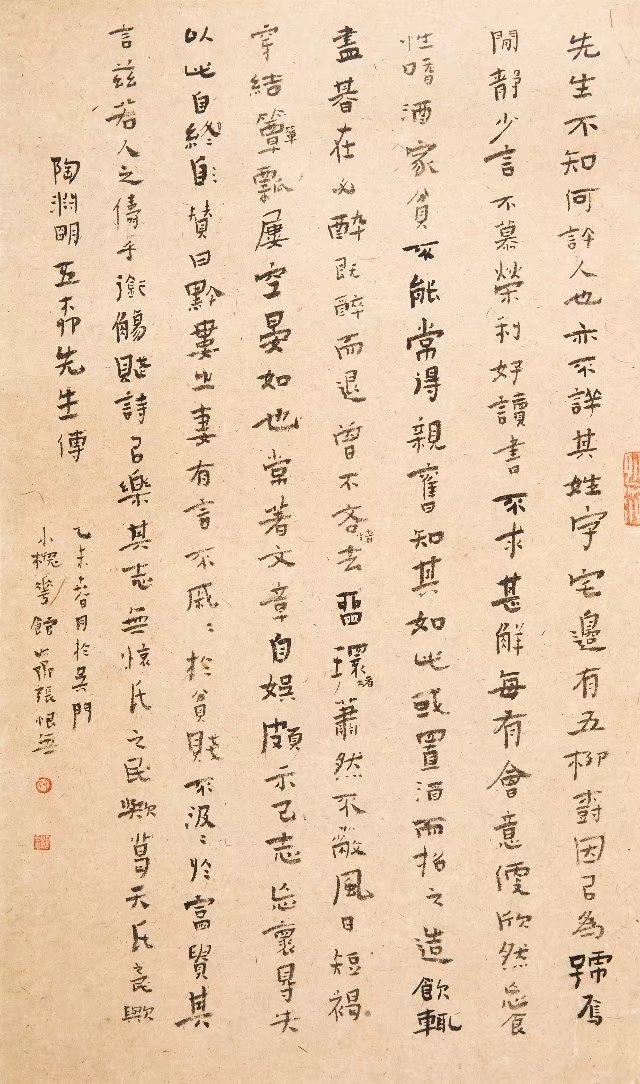 先生不知何許人也亦不詳其姓字宅邊有五柳樹因以為號焉
閒靜少言不慕榮利好讀書不求甚解每有會意便欣然忘食
性嗜酒家貧不能常得親舊知其如此或置酒而招之造飲輒
盡朞在必醉既醉而退曾不吝情去留環堵蕭然不蔽風日短褐
穿結簞瓢屢空晏如也常著文章自娛頗示己志忘懷得失
以此自終贊曰黔婁之妻有言不戚〻於貧賤不汲〻於富貴其
言茲若人之儔乎銜觴賦詩以樂其志無懷氏之民歟葛天氏之民歟
陶淵明五柳先生傳
乙未春月於吳門
小槐華館張恨無